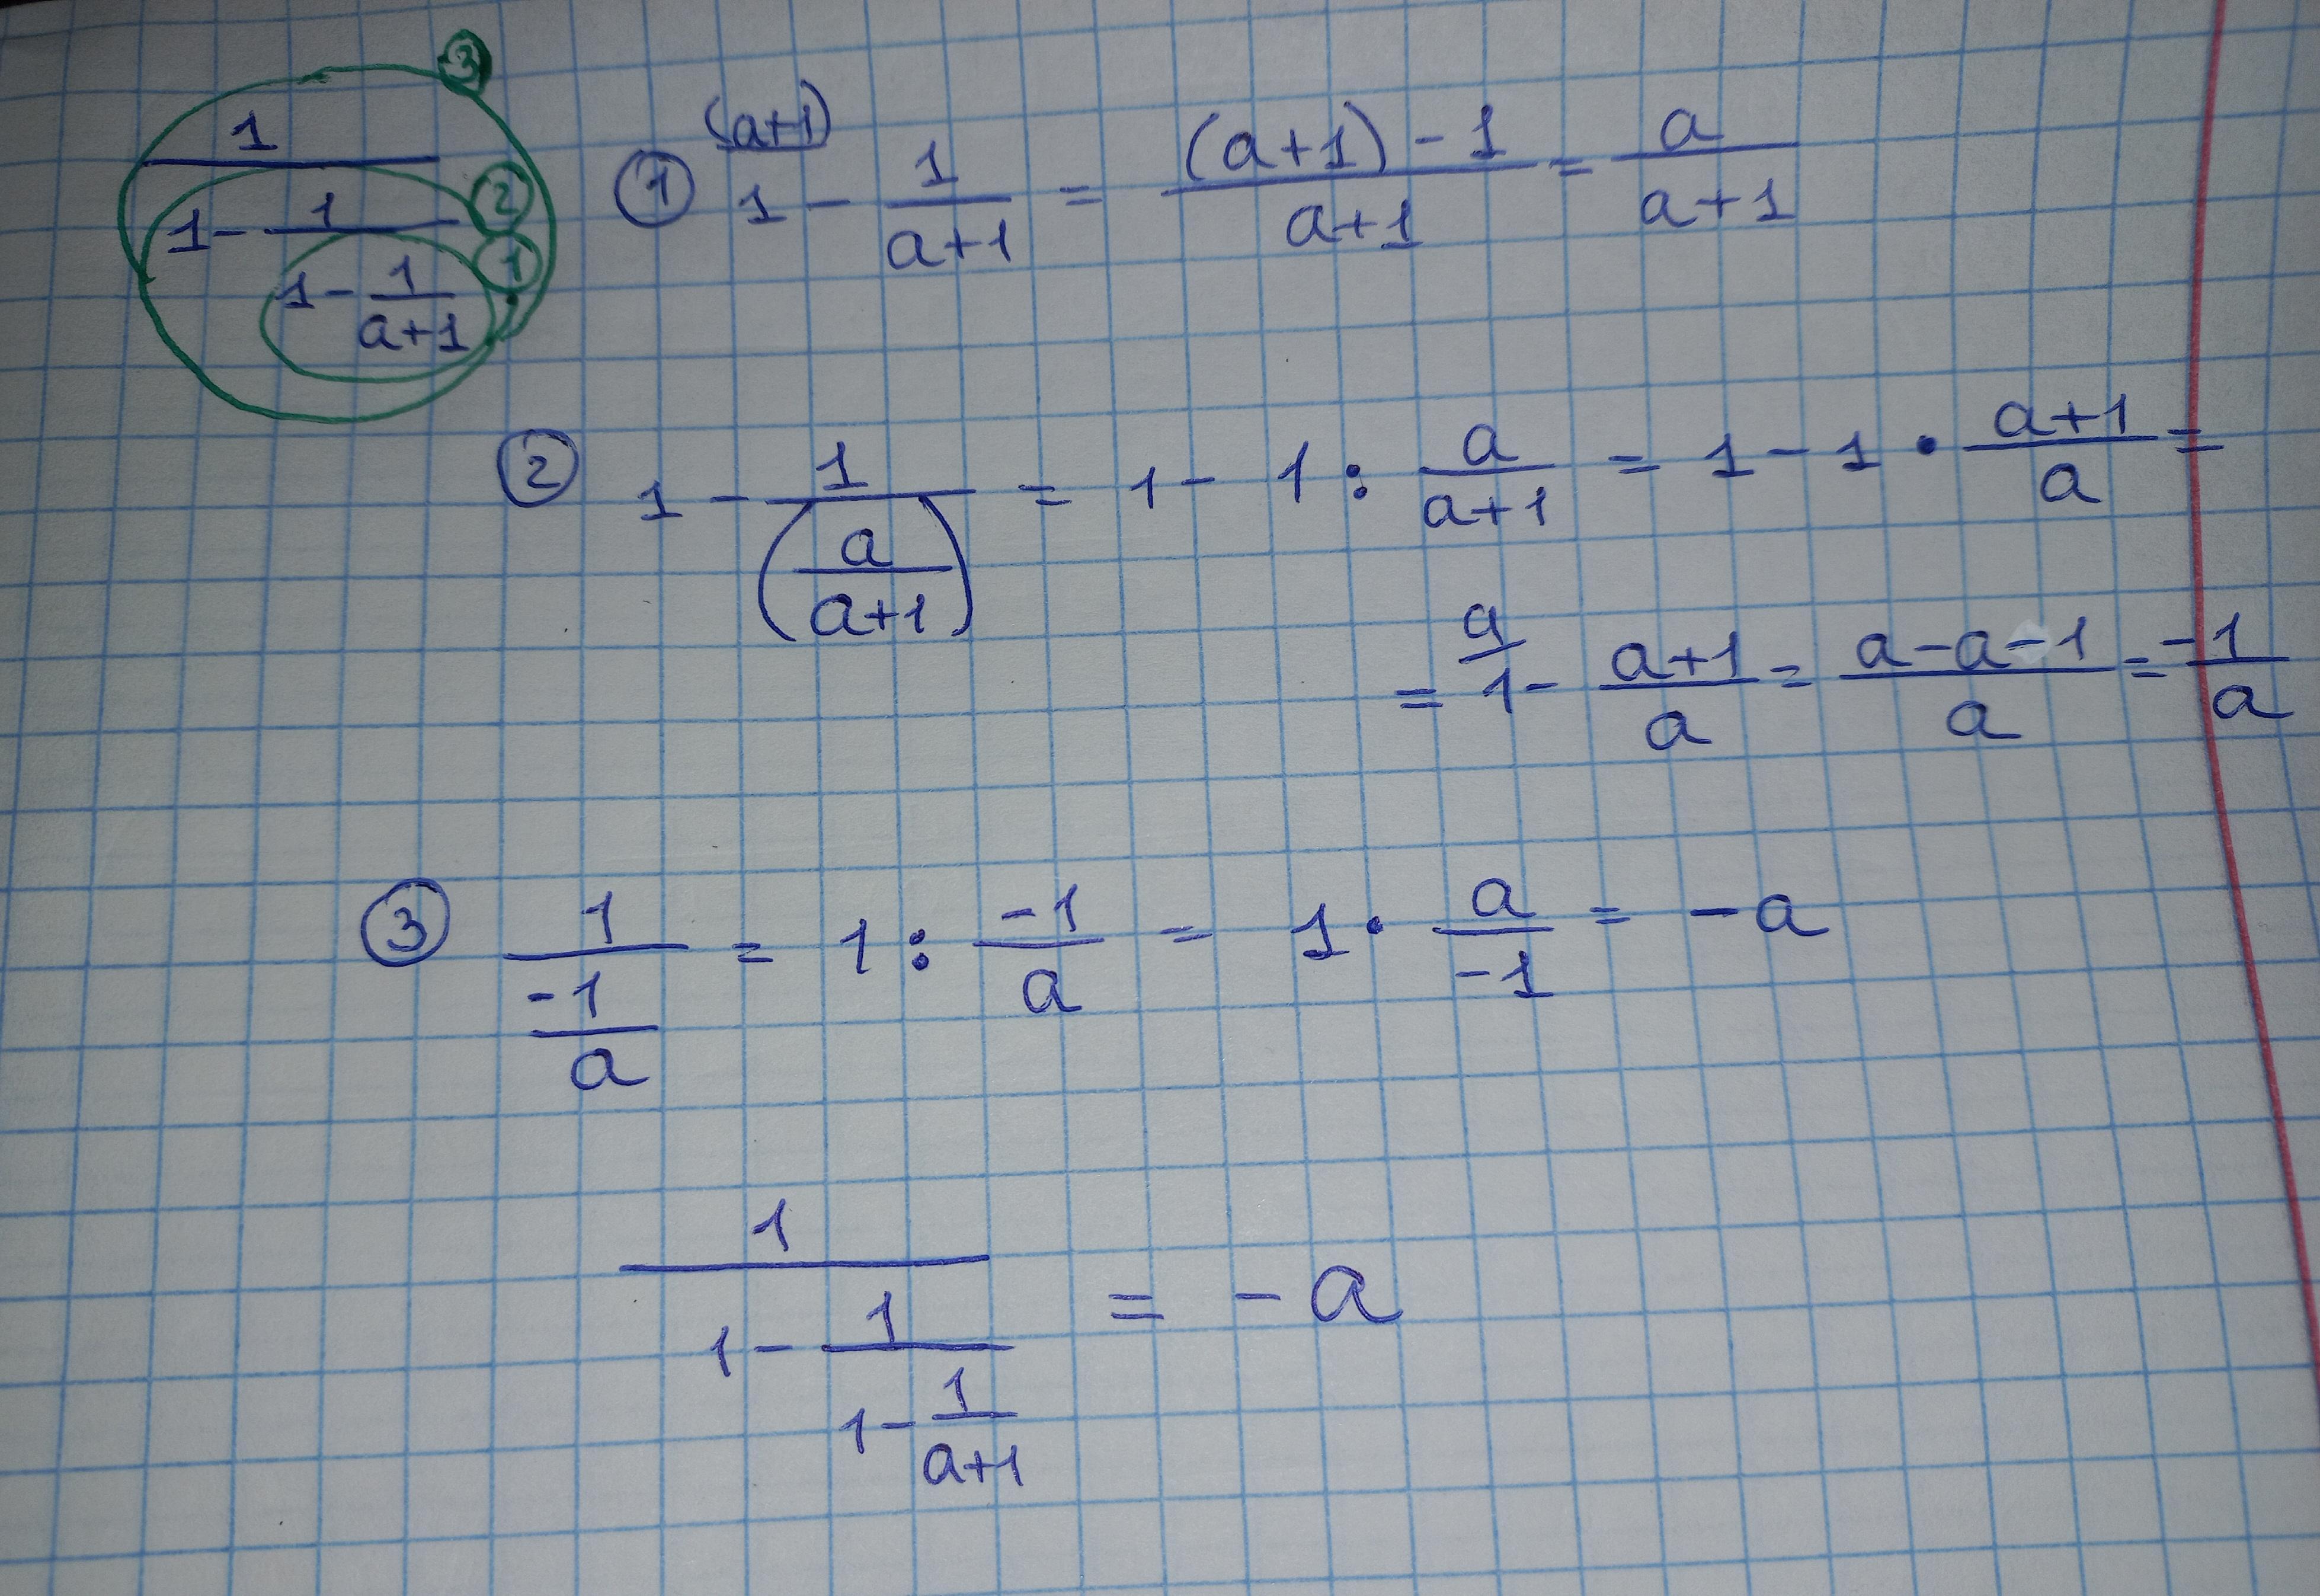 1/(1-1/(1-1/(a+1))) ③ ② ①
① (a+1) 1 - 1/(a+1) = ((a+1)-1)/(a+1) = a/(a+1)
② 1 - 1/(a/(a+1)) = 1 - 1 : a/(a+1) = 1 - 1 · (a+1)/a =
= a 1 - (a+1)/a = (a-a-1)/a = -1/a
③ 1/(-1/a) = 1 : -1/a = 1 · a/-1 = -a
1/(1-1/(1-1/(a+1))) = -a